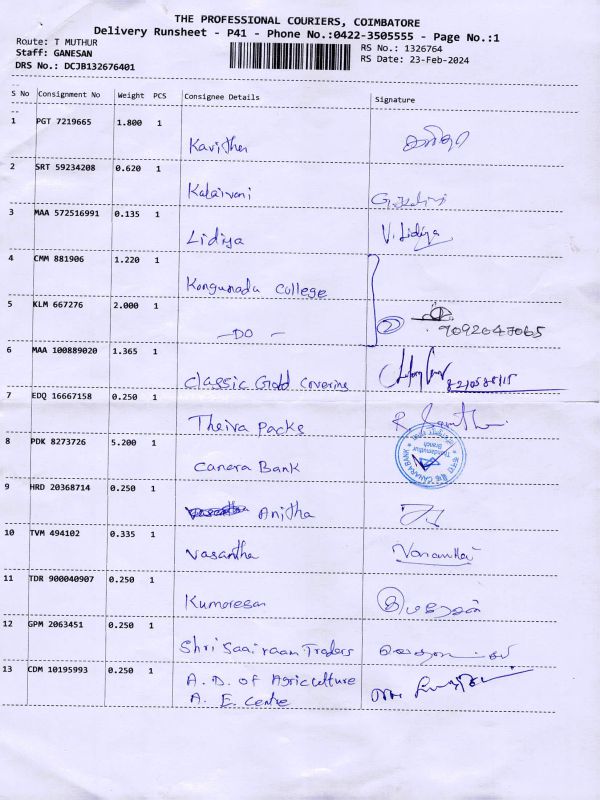 THE PROFESSIONAL COURIERS, COIMBATORE
Delivery Runsheet - P41 - Phone No.:0422-3505555 - Page No.:1
Route: T MUTHUR
RS No.: 1326764
Staff: GANESAN
RS Date: 23-Feb-2024
DRS No.: DCJB132676401
S No Consignment No Weight PCS Consignee Details Signature
1 PGT 7219665 1.800 1
Kavitha
2 SRT 59234208 0.620 1
Kalaivani
3 MAA 572516991 0.135 1
Lidiya V. Lidiya
4 CMM 881906 1.220 1
Kongunadu College
5 KLM 667276 2.000 1
-DO- 2 9092047065
6 MAA 100889020 1.365 1
Classic Gold Covering
7 EDQ 16667158 0.250 1
Theiva Packs
8 PDK 8273726 5.200 1
Canara Bank CANARA BANK Branch
9 HRD 20368714 0.250 1
Anitha
10 TVM 494102 0.335 1
Vasantha
11 TDR 900040907 0.250 1
Kumaresan
12 GPM 2063451 0.250 1
Shri Saairaam Traders
13 CDM 10195993 0.250 1
A. D. of Agriculture
A. E. Centre